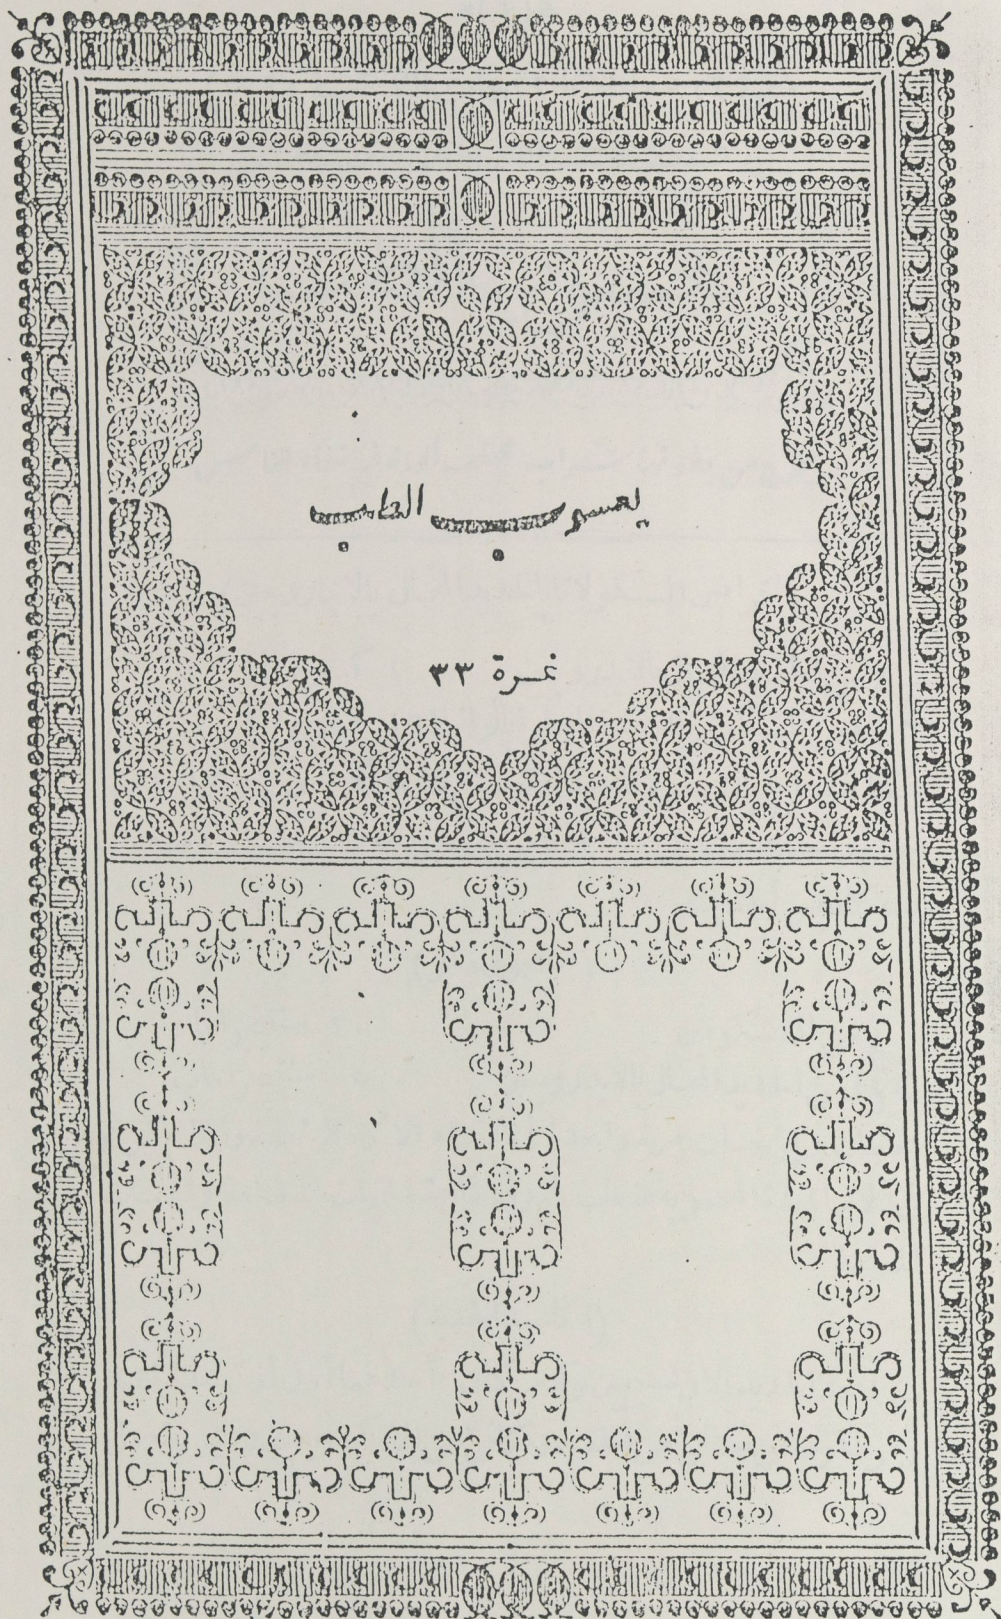 يعسوب الطب
غرة ٣٣